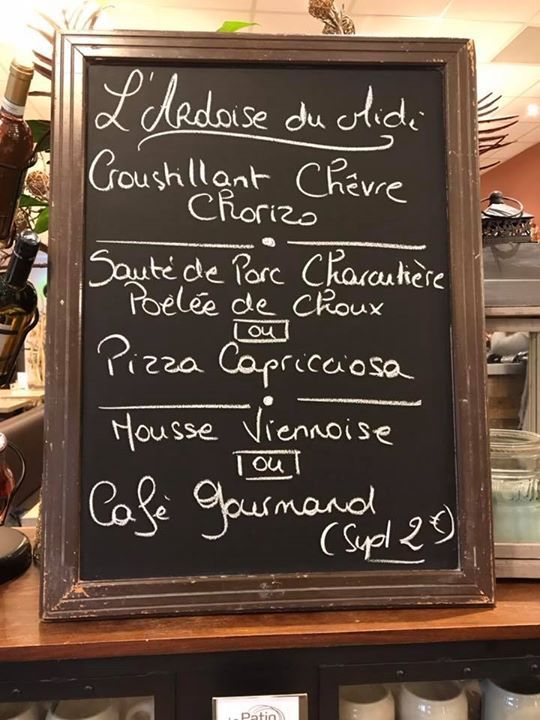 L'Ardoise du Midi
Croustillant Chèvre
Chorizo
Sauté de Porc Charcutière
Poêlée de Choux
ou
Pizza Capricciosa
Mousse Viennoise
ou
Café gourmand
(Supl 2€)
Patio